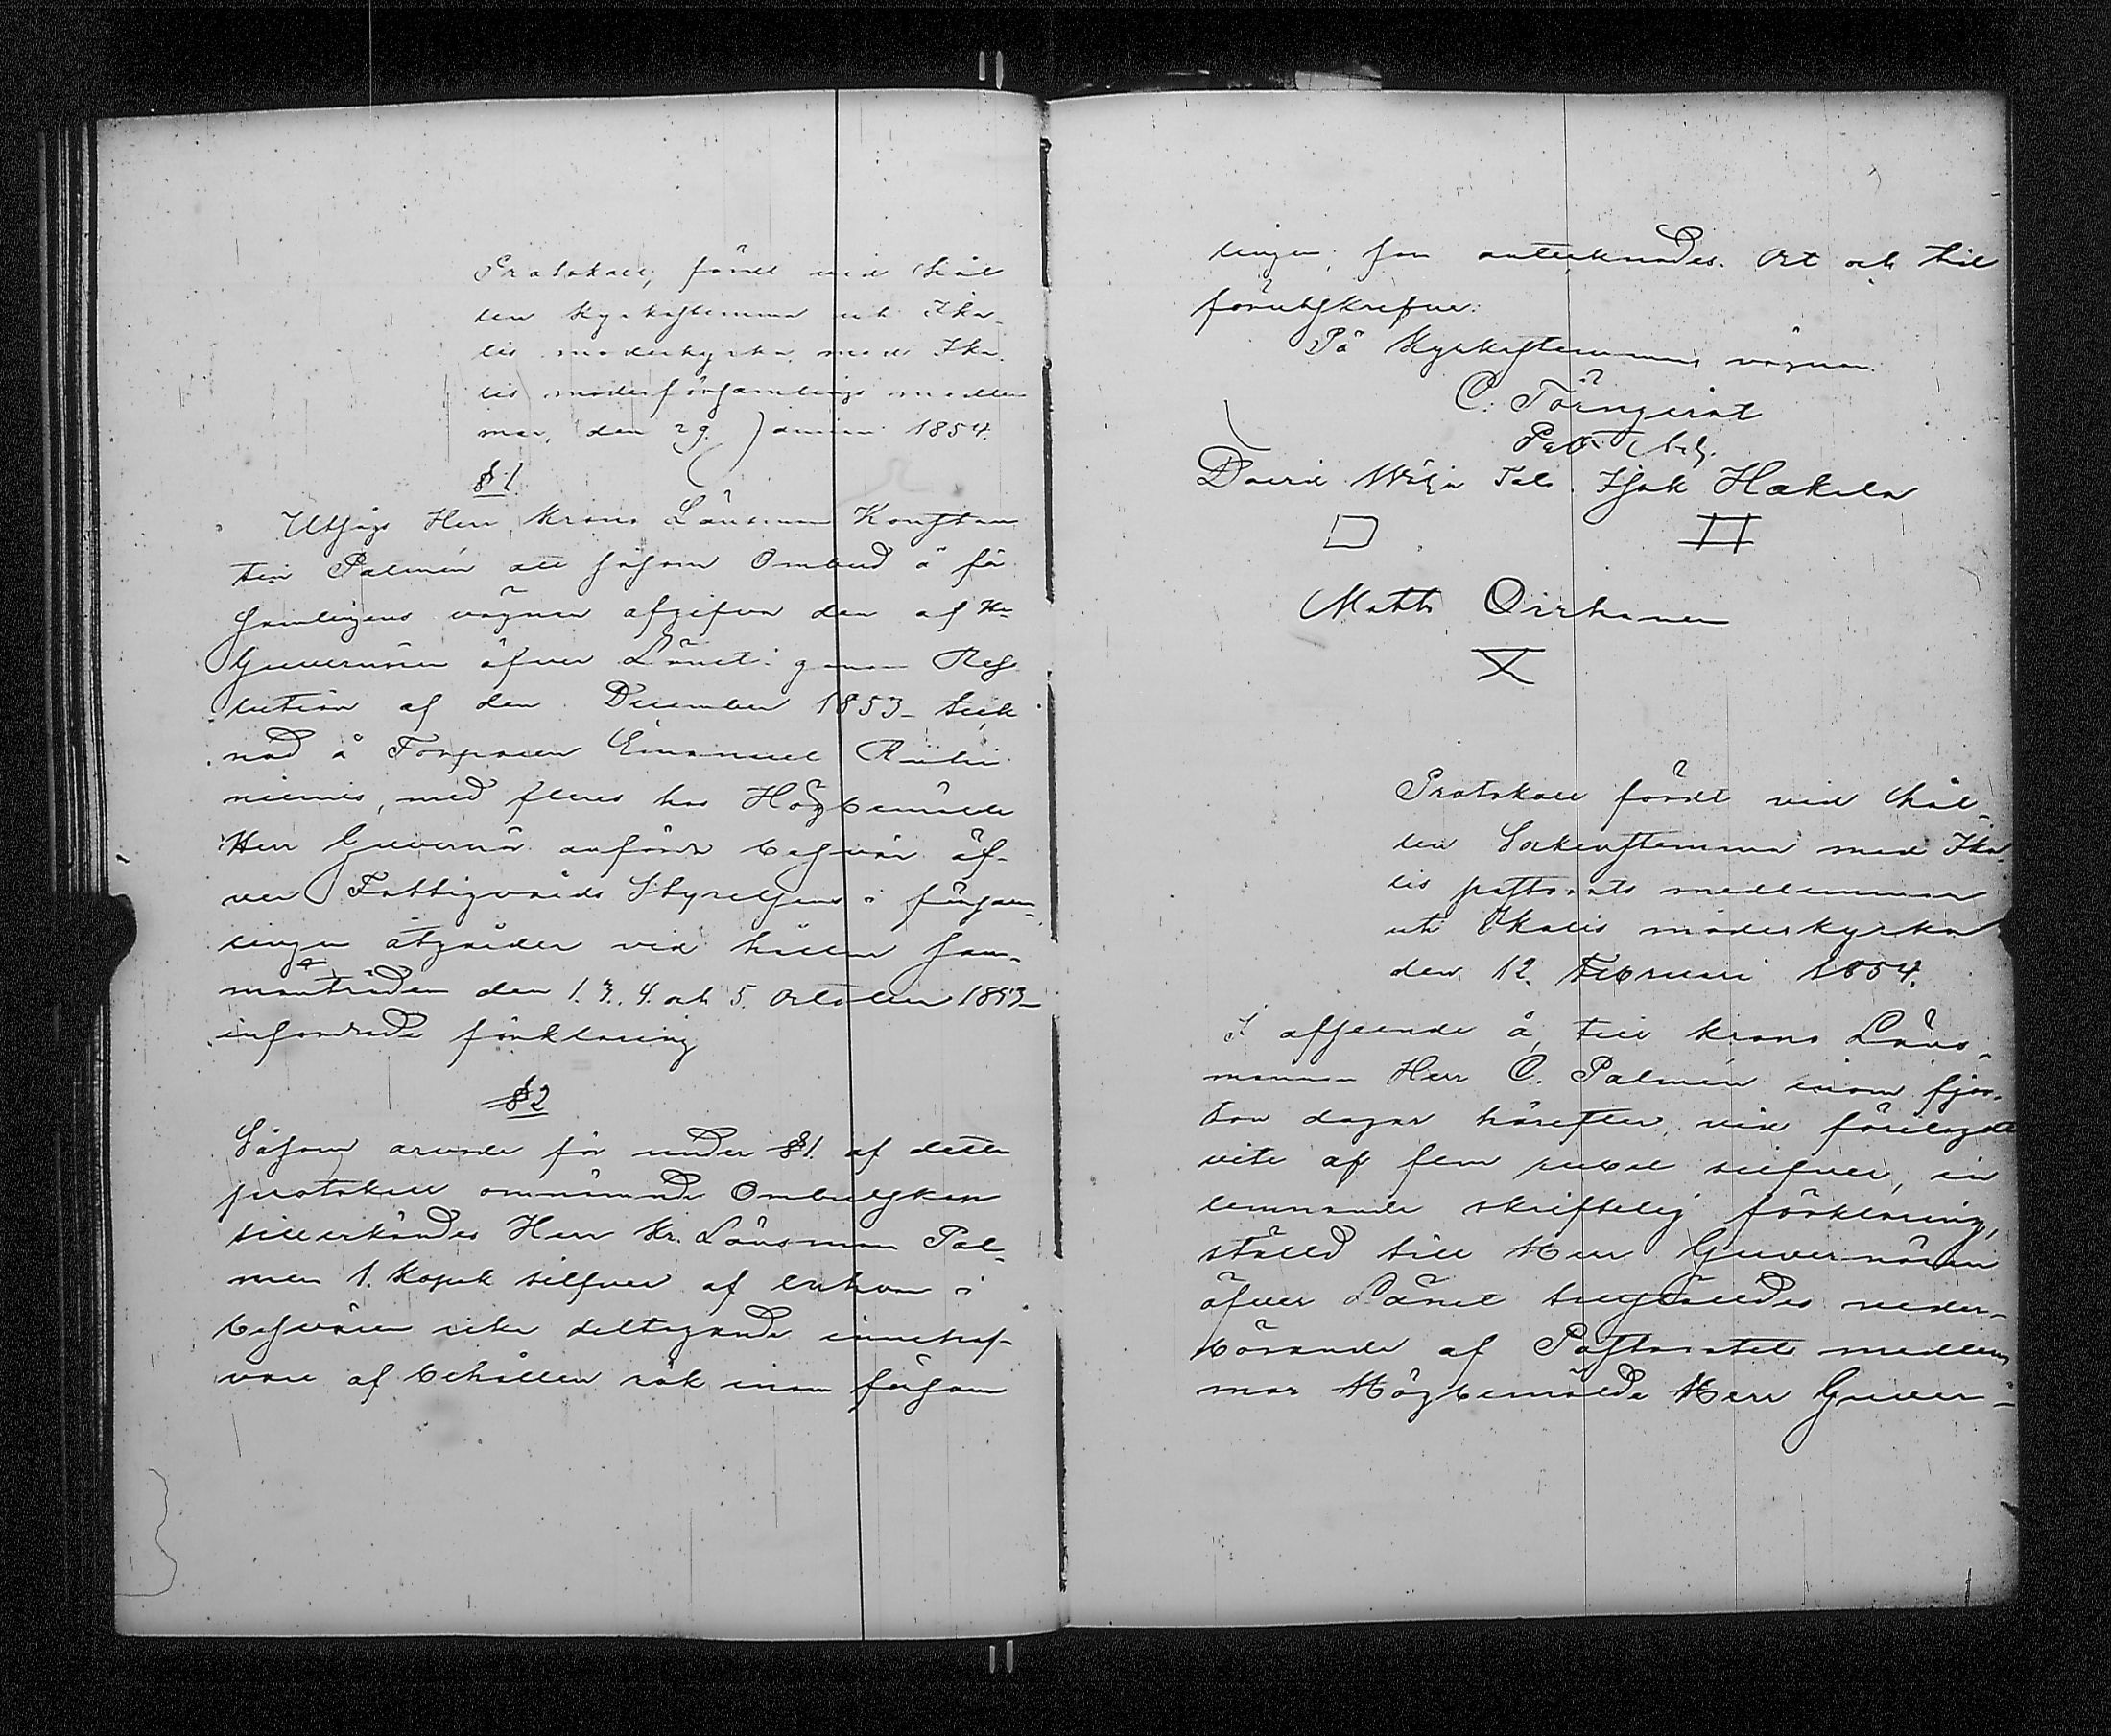 Protokoll, fördt vid hål
len Kyrkostemma uti Ika-
lis moderkyrka med Ika-
lis moderförsamlings medlem
mar, den 29. Januari 1854.
§ 1
Utsågs Herr Krono Länsman Konstan
tin Palmén att såsom Ombud å för
samlingens vägnar afgifva den af Hr
Guvernören öfver Länet genom Reso
lution af den December 1853 teck
nad å Torparen Emanuel Riihi
niemis, med fleres hos Högbemälde
Herr Guvernör anförda besvär öf-
ver Fattigvårds Styrelsens i försam-
lingen åtgärder vid hållne sam-
manträden den 1. 3. 4. och 5. October 1853
infordrade förklaring
§ 2
Såsom arvode för under § 1. af detta
protokoll omnämnde Ombudskap
tillerkändes Herr Kr. Länsman Pal-
mén 1. kopek silfver af enhvar i
besvären icke deltagande innehaf-
vare af behållen rök inom försam
lingen; som antecknades. Ort och tid
förutskrefne:
På Kyrkostemmans vägnar
C. Törnqvist
David Isak Hakala
Matts Oirhanen
Protokoll fördt vid hål-
len Sockenstemma med Ika-
lis pastorats medlemmar
uti Ikalis moderkyrka
den 12. Februari 1854.
I afseende å, till Krono Läns-
mannen Herr C. Palmén inom fjor-
ton dagar härefter, vid förelagdt
vite af fem rubel silfver, in
lemnande skriftelig förklaring,
ställd till Herr Guvernören
öfver Länet tillställdes veder-
börande af Pastoratets medlem
mar Högbemälde Herr Guver-